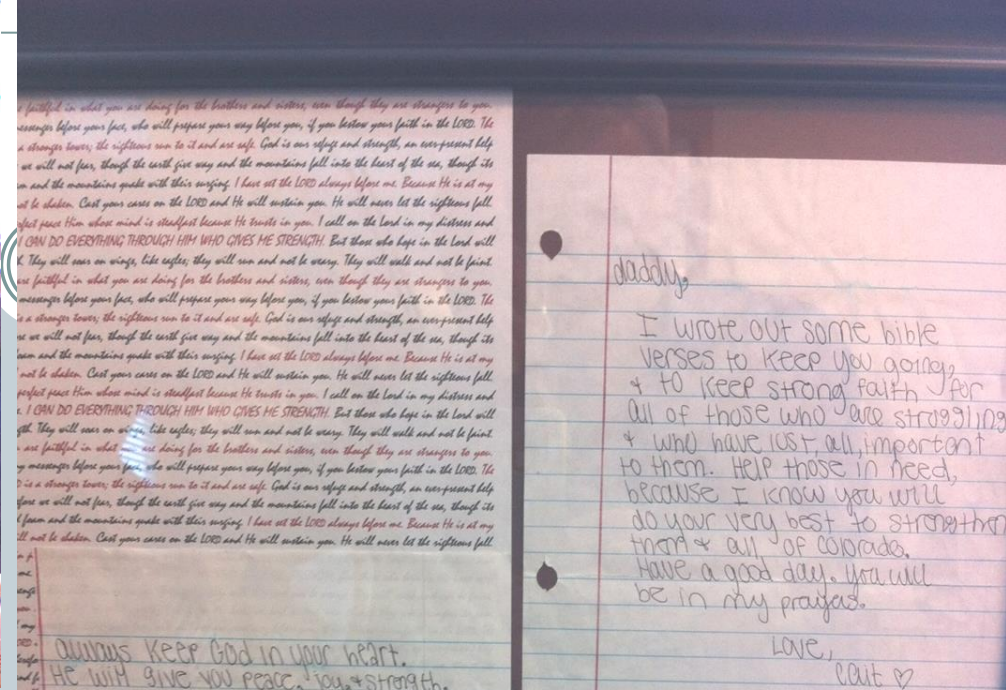 faithful in what you are doing for the brothers and sisters, even though they are strangers to you.
messenger before your face, who will prepare your way before you, if you bestow your faith in the LORD. The
a stronger tower; the righteous run to it and are safe. God is our refuge and strength, an ever-present help
we will not fear, though the earth give way and the mountains fall into the heart of the sea, though its
and the mountains quake with their surging. I have set the LORD always before me. Because He is at my
not be shaken. Cast your cares on the LORD and He will sustain you. He will never let the righteous fall.
perfect peace Him whose mind is steadfast because He trusts in you. I call on the Lord in my distress and
I CAN DO EVERYTHING THROUGH HIM WHO GIVES ME STRENGTH. But those who hope in the Lord will
They will soar on wings, like eagles; they will run and not be weary. They will walk and not be faint.
are faithful in what you are doing for the brothers and sisters, even though they are strangers to you.
messenger before your face, who will prepare your way before you, if you bestow your faith in the LORD. The
is a stronger tower; the righteous run to it and are safe. God is our refuge and strength, an ever-present help
we will not fear, though the earth give way and the mountains fall into the heart of the sea, though its
foam and the mountains quake with their surging. I have set the LORD always before me. Because He is at my
not be shaken. Cast your cares on the LORD and He will sustain you. He will never let the righteous fall.
perfect peace Him whose mind is steadfast because He trusts in you. I call on the Lord in my distress and
I CAN DO EVERYTHING THROUGH HIM WHO GIVES ME STRENGTH. But those who hope in the Lord will
They will soar on wings, like eagles; they will run and not be weary. They will walk and not be faint.
are faithful in what you are doing for the brothers and sisters, even though they are strangers to you.
messenger before your face, who will prepare your way before you, if you bestow your faith in the LORD. The
is a stronger tower; the righteous run to it and are safe. God is our refuge and strength, an ever-present help
we will not fear, though the earth give way and the mountains fall into the heart of the sea, though its
foam and the mountains quake with their surging. I have set the LORD always before me. Because He is at my
not be shaken. Cast your cares on the LORD and He will sustain you. He will never let the righteous fall.
always keep God in your heart.
He will give you peace, joy, & strength.
daddy,
I wrote out some bible
verses to keep you going,
& to keep strong faith for
all of those who are struggling
& who have lost, all, important
to them. Help those in need,
because I know you will
do your very best to strengthen
them & all of Colorado.
Have a good day. you will
be in my prayers.
Love,
Cait ♡